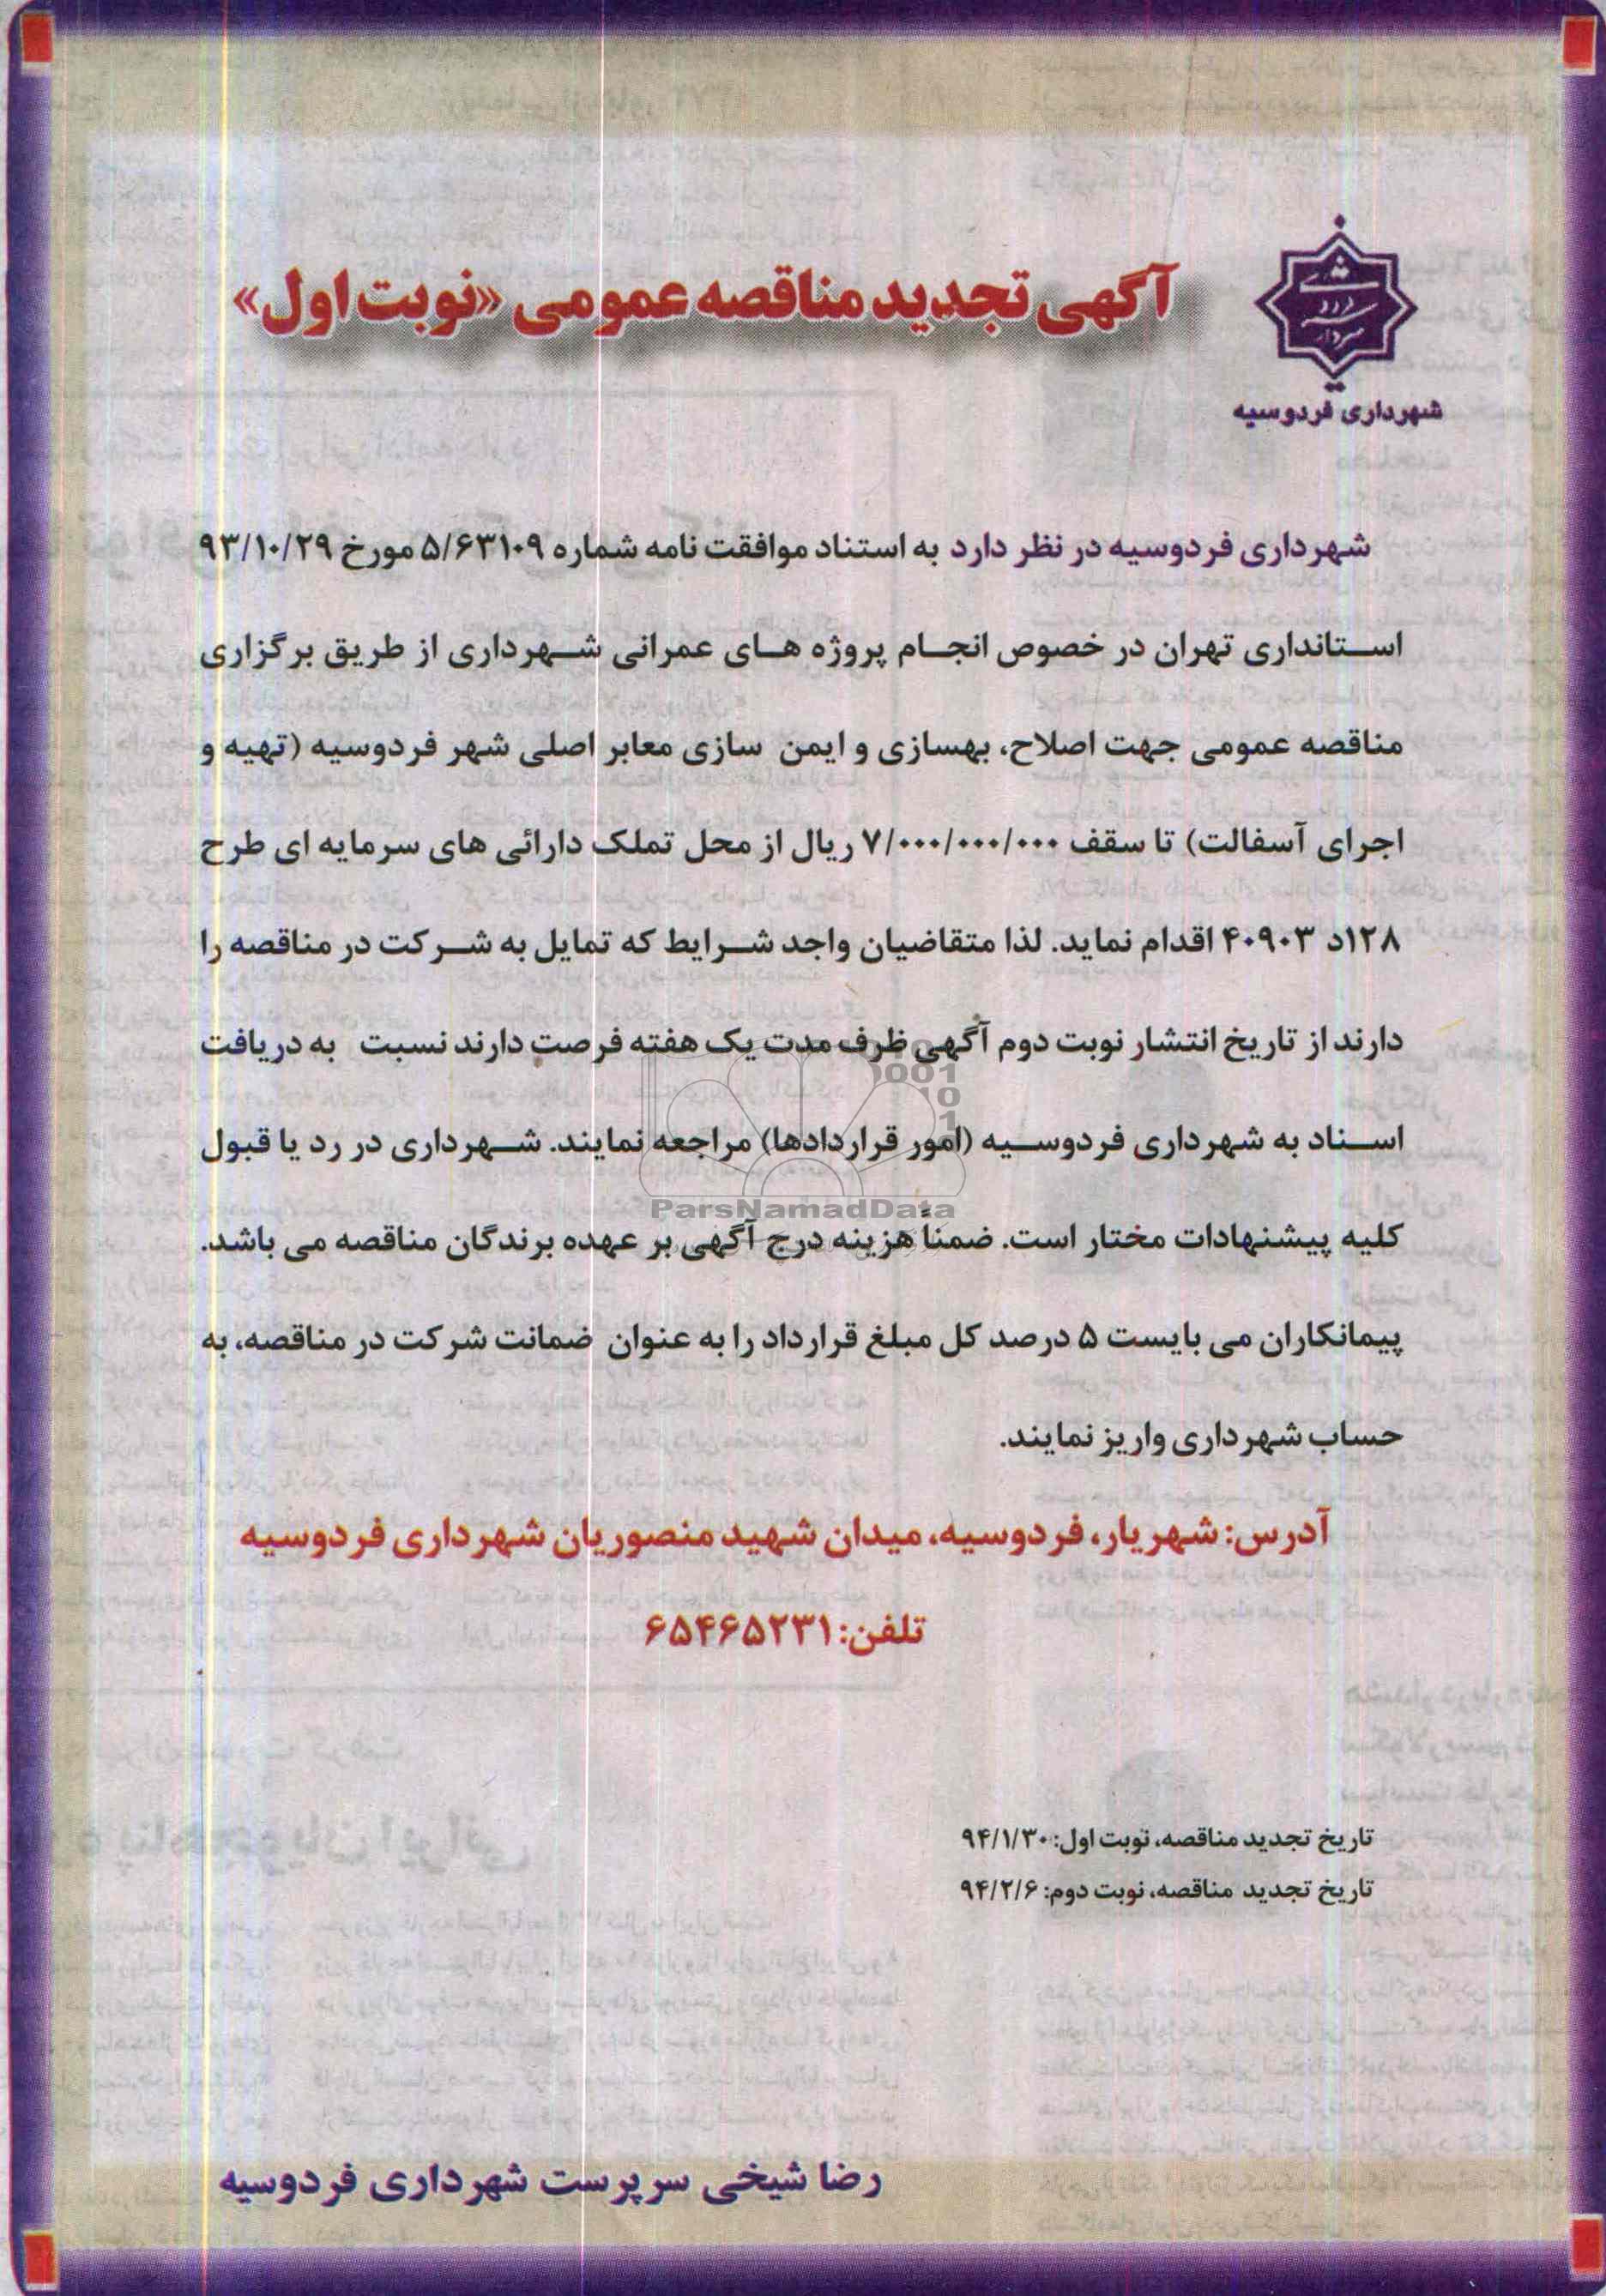 آگهی تجدید مناقصه عمومی «نوبت اول»
شهرداری فردوسیه
شهرداری فردوسیه در نظر دارد به استناد موافقت نامه شماره ۵/۶۳۱۰۹ مورخ ۹۳/۱۰/۲۹
استانداری تهران در خصوص انجام پروژه های عمرانی شهرداری از طریق برگزاری
مناقصه عمومی جهت اصلاح، بهسازی و ایمن سازی معابر اصلی شهر فردوسیه (تهیه و
اجرای آسفالت) تا سقف ۷/۰۰۰/۰۰۰/۰۰۰ ریال از محل تملک دارائی های سرمایه ای طرح
۱۲۸د ۴۰۹۰۳ اقدام نماید. لذا متقاضیان واجد شرایط که تمایل به شرکت در مناقصه را
دارند از تاریخ انتشار نوبت دوم آگهی ظرف مدت یک هفته فرصت دارند نسبت به دریافت
اسناد به شهرداری فردوسیه (امور قراردادها) مراجعه نمایند. شهرداری در رد یا قبول
ParsNamadData
کلیه پیشنهادات مختار است. ضمناً هزینه درج آگهی بر عهده برندگان مناقصه می باشد.
پیمانکاران می بایست ۵ درصد کل مبلغ قرارداد را به عنوان ضمانت شرکت در مناقصه، به
حساب شهرداری واریز نمایند.
آدرس: شهریار، فردوسیه، میدان شهید منصوریان شهرداری فردوسیه
تلفن: ۶۵۴۶۵۲۳۱
تاریخ تجدید مناقصه، نوبت اول: ۹۴/۱/۳۰
تاریخ تجدید مناقصه، نوبت دوم: ۹۴/۲/۶
رضا شیخی سرپرست شهرداری فردوسیه